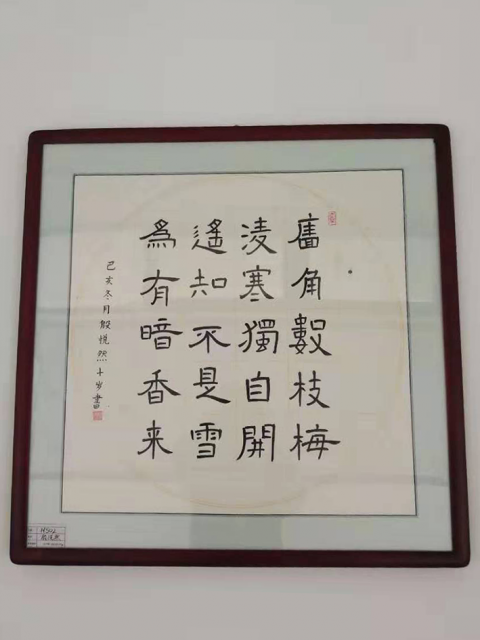 廧角數枝梅
淩寒獨自開
遙知不是雪
為有暗香来
己亥冬月殷悦然十岁書